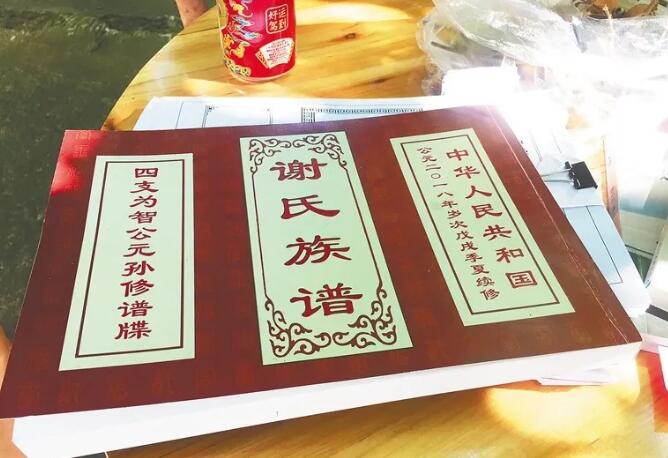 中华人民共和国
公元二〇一八年岁次戊戌季夏续修
谢氏族谱
四支为智公元孙修谱牒
好运
驾到